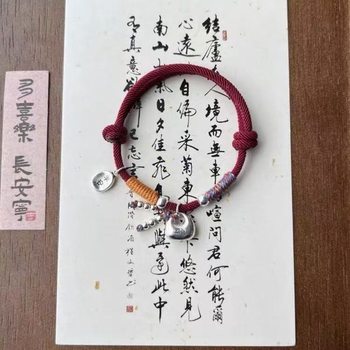 多喜樂 長安寧
結廬人境而無車喧問君何能爾
心遠自偏采菊東下悠然見
南山氣日夕佳與還此中
有真意辨已忘言